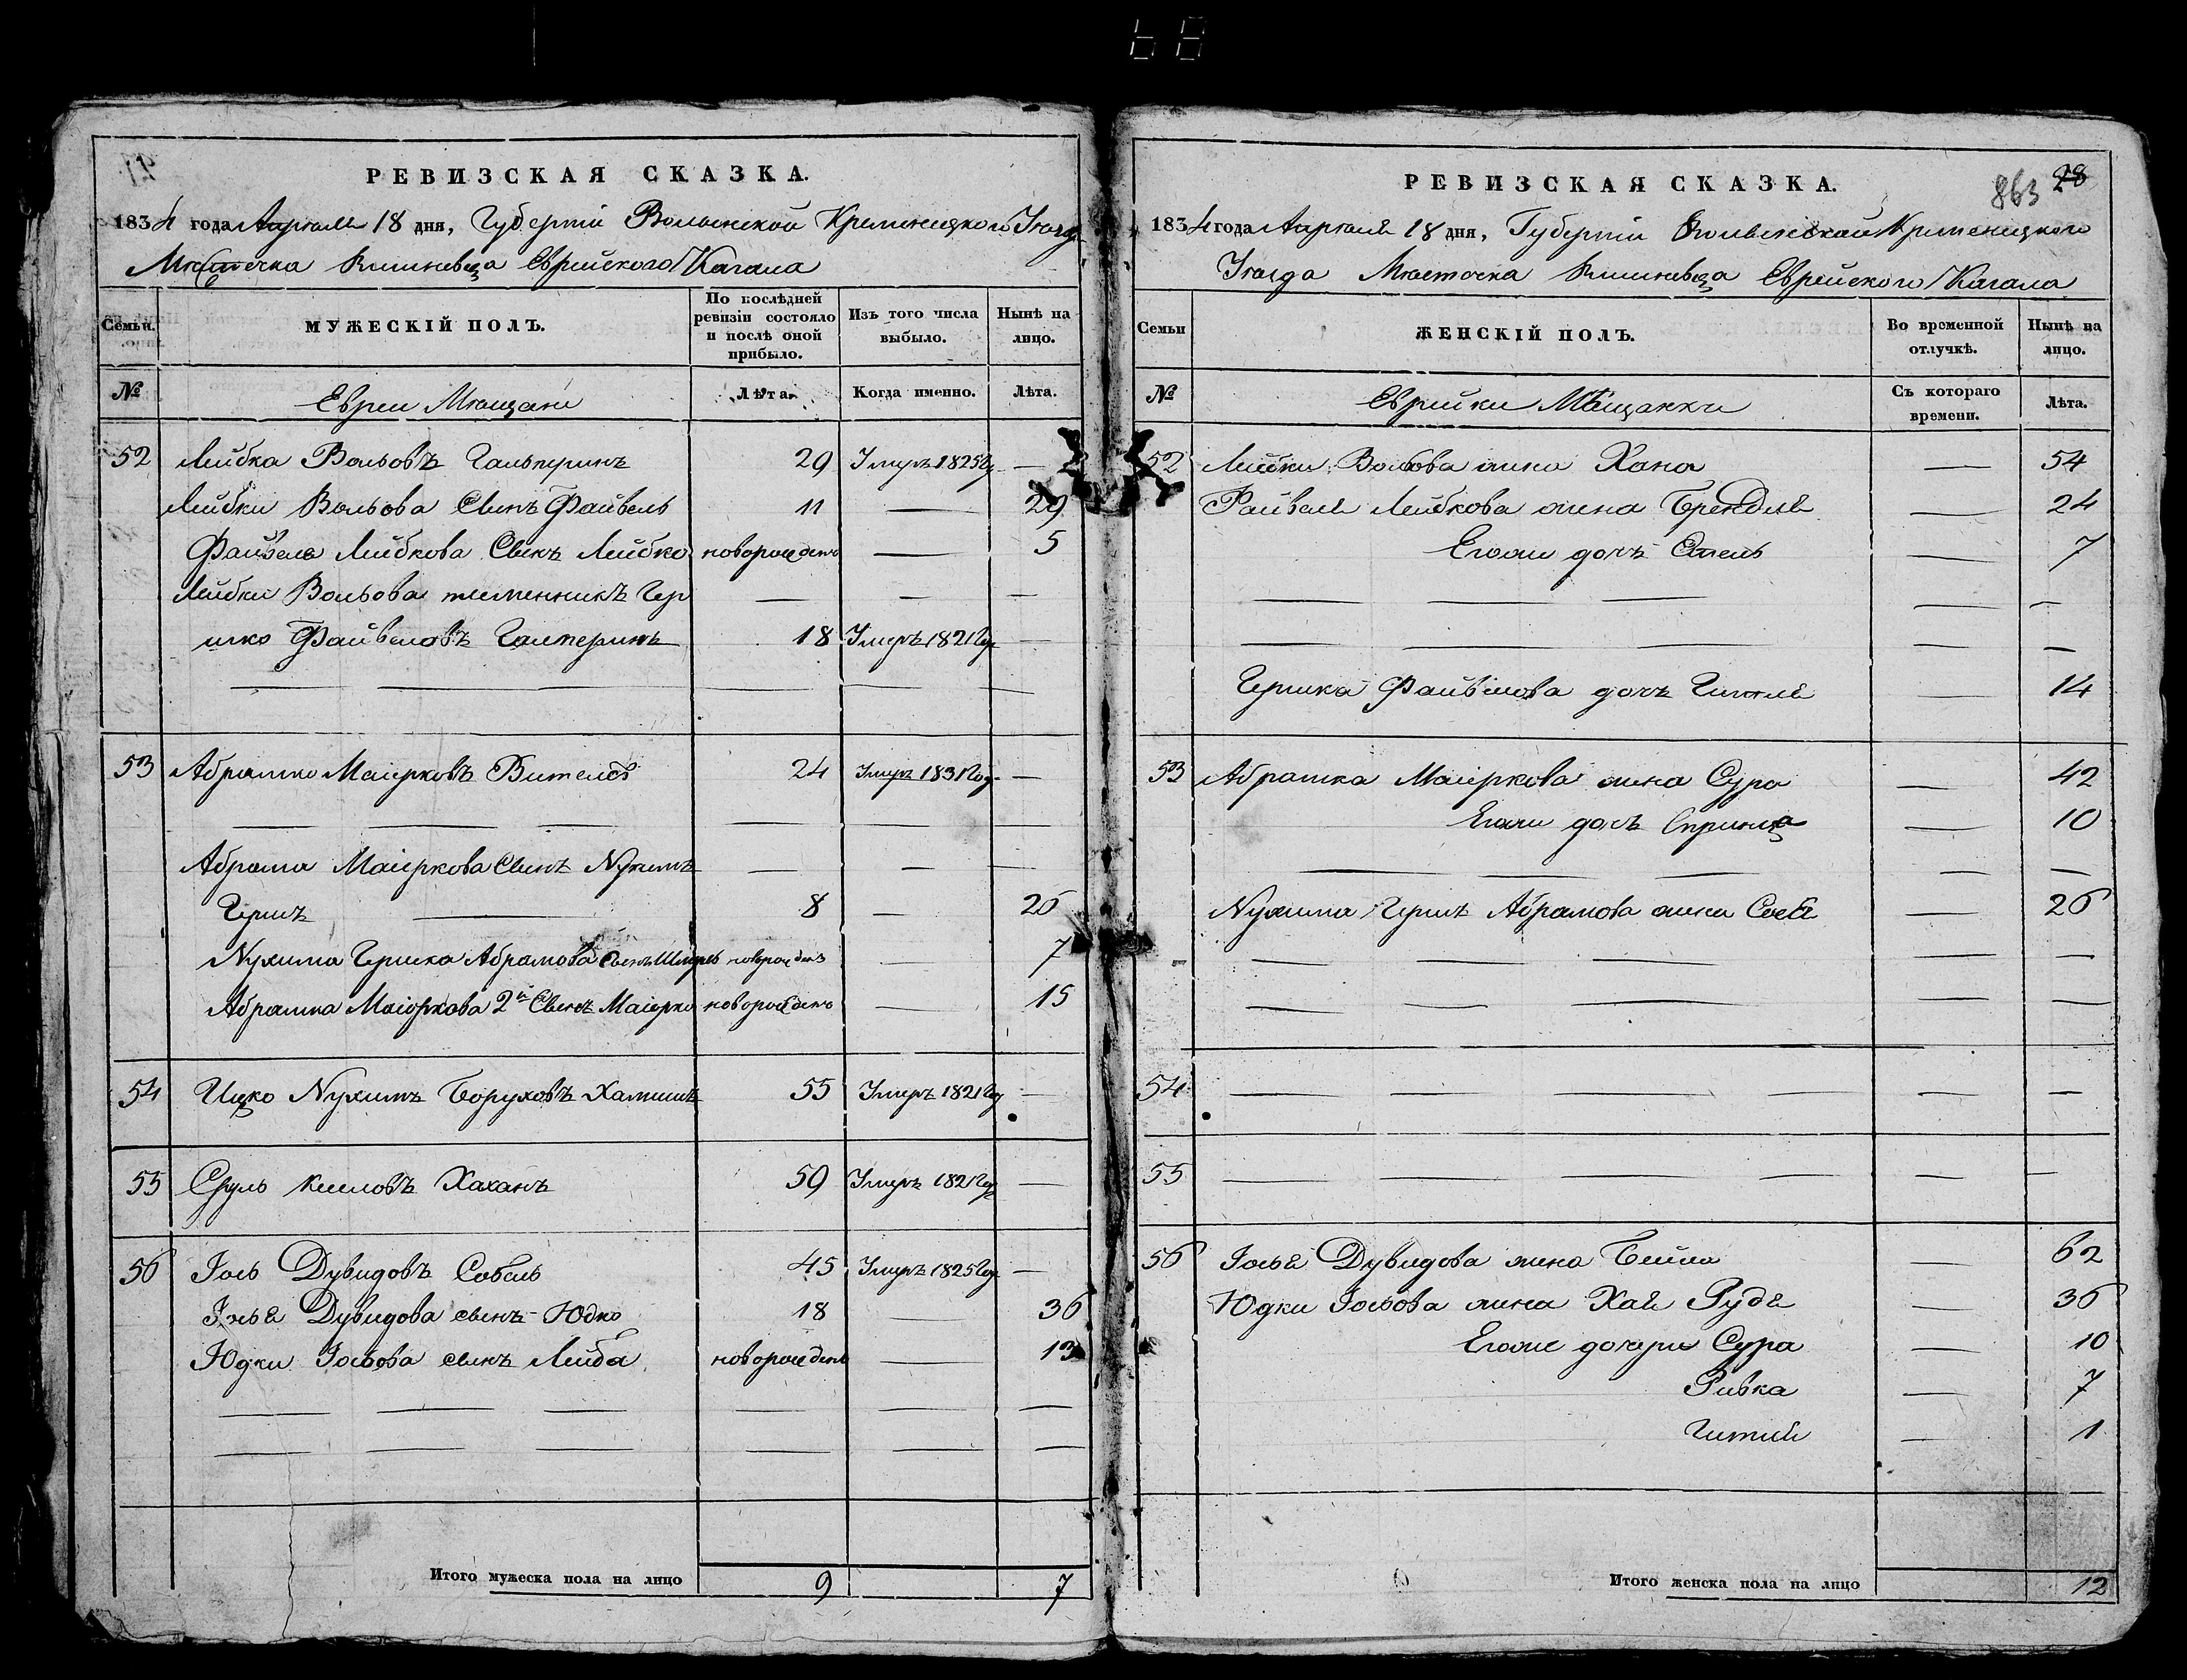 РЕВИЗСКАЯ СКАЗКА.
1834 года Апреля 18 дня, Губернiи Волынской Кременецкого Уезда
Местечка Вишневца Еврейского Кагала
Семьи.
МУЖЕСКІЙ ПОЛЪ.
По послѣдней ревизіи состояло и послѣ оной прибыло.
Изъ того числа выбыло.
Нынѣ на лицо.
№
Евреи Мещани
Лѣта.
Когда именно.
Лѣта.
52 Лейбка Вольовъ Гальперинъ 29 Умеръ 1825 Год —
Лейбки Вольова Сынъ Файвель 11 — 29
Файвель Лейбкова Сынъ Лейбко новорожденъ — 5
Лейбки Вольова племенникъ Гер — — —
шко Файвеловъ Галперинъ 18 Умеръ 1821 Год —
53 Абрашко Маiерковъ Вителсъ 24 Умеръ 1831 Год —
Абраша Маiеркова Сынъ Нухимъ — — —
Гершъ — 8 — 25
Нухима Гершка Абрамова Сынъ новорожденъ — 7
Абрашка Маiоркова 2й Сынъ Маiорко новорожденъ — 15
54 Ицко Нухимъ Боруховъ 55 Умеръ 1821 Год —
55 Сруль Киеловъ Хаханъ 59 Умеръ 1821 Год —
56 Іоль Дувидовъ Собель 45 Умеръ 1825 Год —
Іоля Дувидова сынъ Юдко 18 — 36
Юдки Іольова сынъ Лейба новорожденъ — 13
Итого мужеска пола на лицо 9 7
863 28
РЕВИЗСКАЯ СКАЗКА.
1834 года Апреля 18 дня, Губернiи Волынской Кременецкого
Уезда Местечка Вишневца Еврейского Кагала
Семьи
ЖЕНСКІЙ ПОЛЪ.
Во временной отлучкѣ.
Нынѣ на лицо.
№
Еврейки Мѣщанки
Съ котораго времени.
Лѣта.
52 Лейбки Вольова жена Хана — 54
Файвеля Лейбкова жена Брендля — 24
Егоже дочъ — 7
Гершка Файвелова дочъ Гитля — 14
53 Абрашка Маiеркова жена Сура — 42
Егоже дочъ Спринца — 10
Нухима Гершъ Абрамова жена — 26
54 — — — — — — —
55 — — — — — — —
56 Іоля Дувидова жена Бейла — 62
Юдки Іольова жена Хая Рудя — 36
Егоже дочери Сура — 10
Ривка — 7
Гитля — 1
Итого женска пола на лицо 12